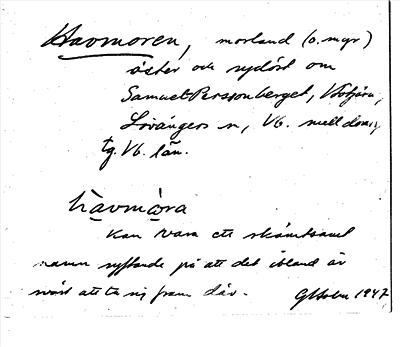 Havmoren, morland (o. myr)
öster och sydöst om
Samuel-Perssonberget,
Lövångers sn, Vb.
tg. Vb. län.
havmora
Kan vara ett skämtsamt
namn syftande på att det ibland är
svårt att ta sig fram där. 1947